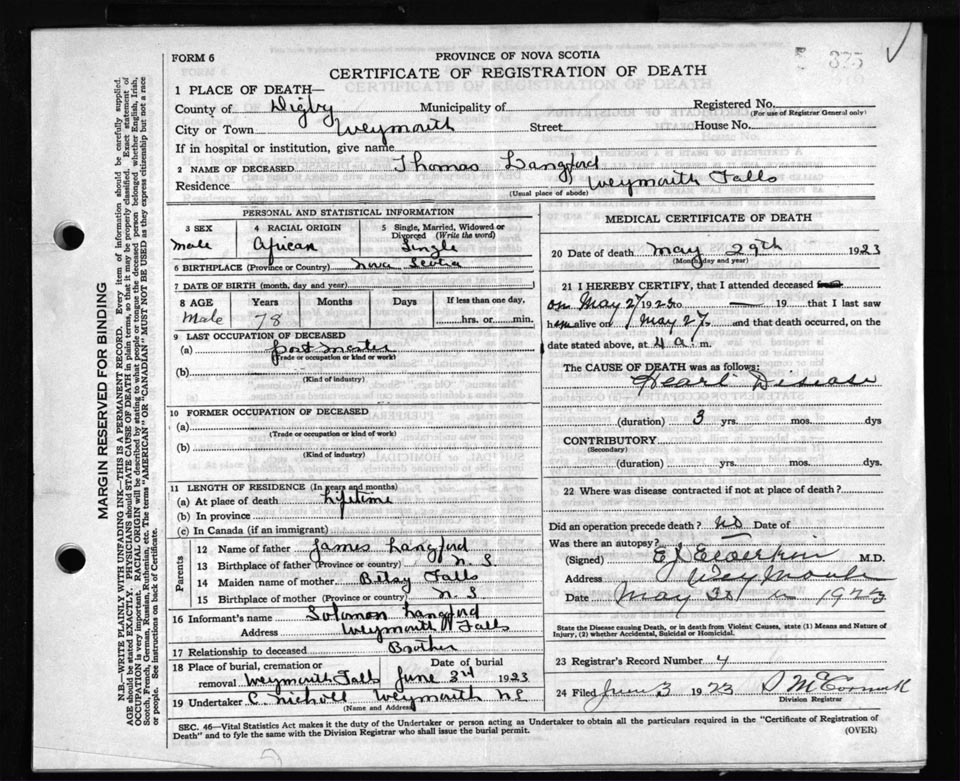 FORM 6
PROVINCE OF NOVA SCOTIA
CERTIFICATE OF REGISTRATION OF DEATH
335
1 PLACE OF DEATH—
County of Digby Municipality of Registered No.
(For use of Registrar General only)
City or Town Weymouth Street House No.
If in hospital or institution, give name
2 NAME OF DECEASED Thomas Langford
Residence Weymouth Falls
(Usual place of abode)
PERSONAL AND STATISTICAL INFORMATION
3 SEX 4 RACIAL ORIGIN 5 Single, Married, Widowed or Divorced (Write the word)
Male African Single
6 BIRTHPLACE (Province or Country) Nova Scotia
7 DATE OF BIRTH (month, day and year)
8 AGE Years Months Days If less than one day,
Male 78 hrs. or min.
9 LAST OCCUPATION OF DECEASED
(a) post master
(Trade or occupation or kind of work)
(b)
(Kind of industry)
10 FORMER OCCUPATION OF DECEASED
(a)
(Trade or occupation or kind of work)
(b)
(Kind of industry)
11 LENGTH OF RESIDENCE (In years and months)
(a) At place of death Lifetime
(b) In province
(c) In Canada (if an immigrant)
Parents
12 Name of father James Langford
13 Birthplace of father (Province or country) N. S
14 Maiden name of mother Betsy Falls
15 Birthplace of mother (Province or country) N. S
16 Informant's name Solomon Langford
Address Weymouth Falls
17 Relationship to deceased Brother
18 Place of burial, cremation or removal Weymouth Falls Date of burial June 3rd 1923
19 Undertaker C. Nichol Weymouth NS
(Name and Address)
MEDICAL CERTIFICATE OF DEATH
20 Date of death May 29th 1923
(Month, day and year)
21 I HEREBY CERTIFY, that I attended deceased
on May 27 1923 to — 19 that I last saw
him alive on May 27. and that death occurred, on
date stated above, at 4 a. m.
The CAUSE OF DEATH was as follows:
Heart Disease
(duration) 3 yrs. mos. dys
CONTRIBUTORY
(Secondary)
(duration) yrs. mos. dys.
22 Where was disease contracted if not at place of death?
Did an operation precede death? no Date of
Was there an autopsy?
(Signed) M.D.
Address Weymouth
Date May 31 1923
State the Disease causing Death, or in death from Violent Causes, state (1) Means and Nature of
Injury, (2) whether Accidental, Suicidal or Homicidal.
23 Registrar's Record Number 4
24 Filed June 3 1923 D McCormick
Division Registrar
SEC. 46—Vital Statistics Act makes it the duty of the Undertaker or person acting as Undertaker to obtain all the particulars required in the "Certificate of Registration of
Death" and to fyle the same with the Division Registrar who shall issue the burial permit.
(OVER)
MARGIN RESERVED FOR BINDING
N.B.—WRITE PLAINLY WITH UNFADING INK—THIS IS A PERMANENT RECORD. Every item of information should be carefully supplied.
AGE should be stated EXACTLY. PHYSICIANS should STATE CAUSE OF DEATH in plain terms, so that it may be properly classified. Exact statement of
OCCUPATION is very important. RACIAL ORIGIN will be described by stating to what people or tongue the deceased person belonged whether English, Irish,
Scotch, French, German, Russian, Ruthenian, etc. The terms "AMERICAN" OR "CANADIAN" MUST NOT BE USED as they express citizenship but not a race
or people. See instructions on back of Certificate.